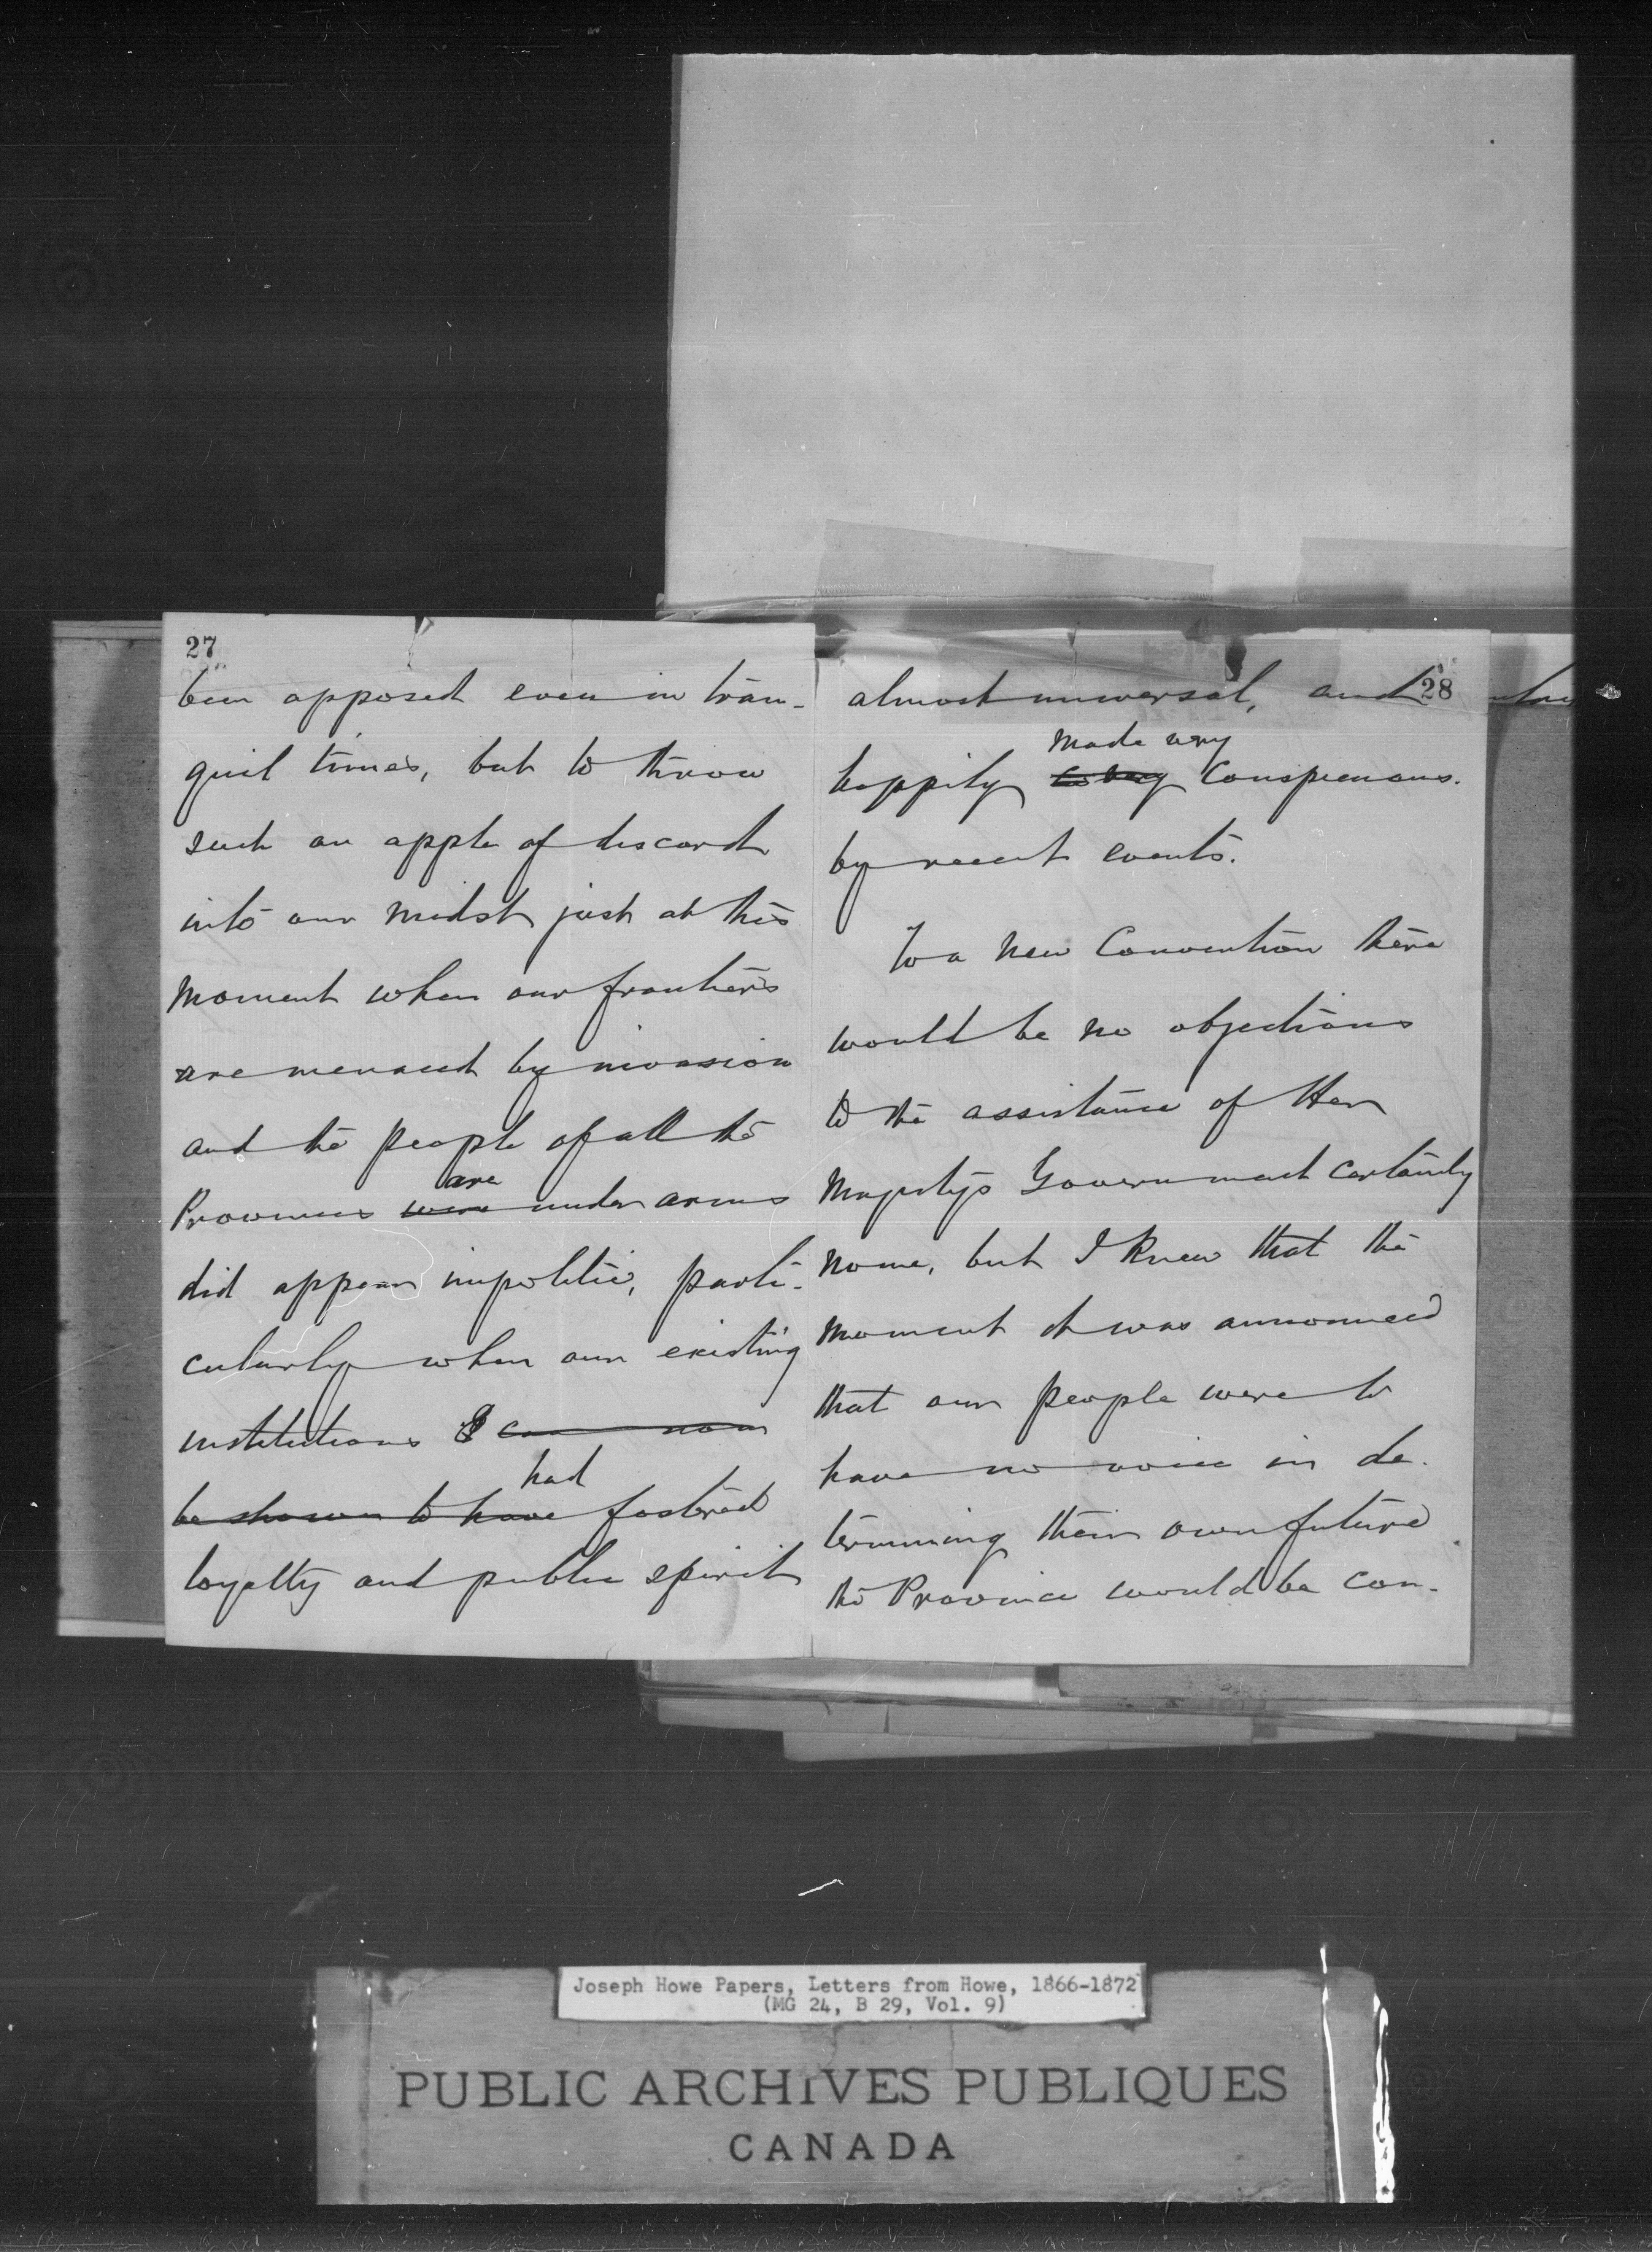 27
been opposed even in tran-
quil times, but to throw
such an apple of discord
into our midst just at this
moment when our frontiers
are menaced by invasion
and the people of all the
are
Provinces were under arms
did appear impolitic, parti-
cularly when our existing
institutions I can now
had
be shown to have fostered
loyalty and public spirit
28
almost universal, and
made very
happily so very conspicuous.
by recent events.
To a new Convention there
would be no objections
to the assistance of Her
Majestys Government certainly
none, but I knew that the
moment it was announced
that our people were to
have no voice in de-
termining their own future
the Province would be con-
Joseph Howe Papers, Letters from Howe, 1866-1872
(MG 24, B 29, Vol. 9)
PUBLIC ARCHIVES PUBLIQUES
CANADA